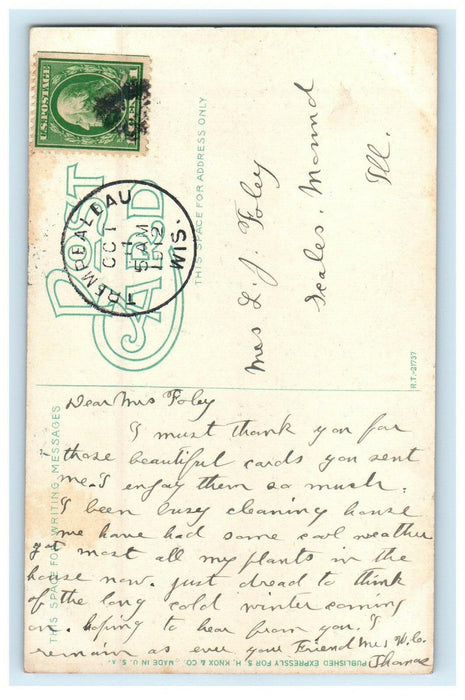 U.S. POSTAGE
1 CENT 1
TREMPEALEAU
OCT
1
5 AM
1912
WIS.
POST
CARD
THIS SPACE FOR ADDRESS ONLY
Mrs L. J. Foley
Scales, Mound
Ill.
R.T.-21737
THIS SPACE FOR WRITING MESSAGES
Dear Mrs Foley
I must thank you for
those beautiful cards you sent
me. I enjoy them so much.
I been busy cleaning house
we have had some cool weather
got most all my plants in the
house now. just dread to think
of the long cold winter coming
on. hoping to hear from you. I
remain as ever your Friend Mrs W. C.
Thomas
PUBLISHED EXPRESSLY FOR S. H. KNOX & CO. MADE IN U. S. A.